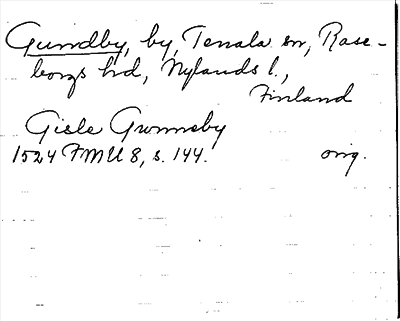 Gundby, by, Tenala sn, Rase-
borgs hd, Nylands l.,
Finland
Gisle Gwnnsby
1524 FMU 8, s. 144. orig.